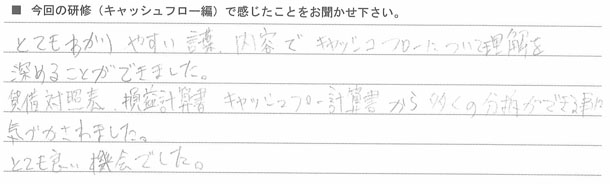 ■ 今回の研修（キャッシュフロー編）で感じたことをお聞かせ下さい。
とてもわかりやすい講義、内容でキャッシュフローについて理解を
深めることができました。
貸借対照表、損益計算書 キャッシュフロー計算書から多くの分析ができる事に
気づかされました。
とても良い機会でした。